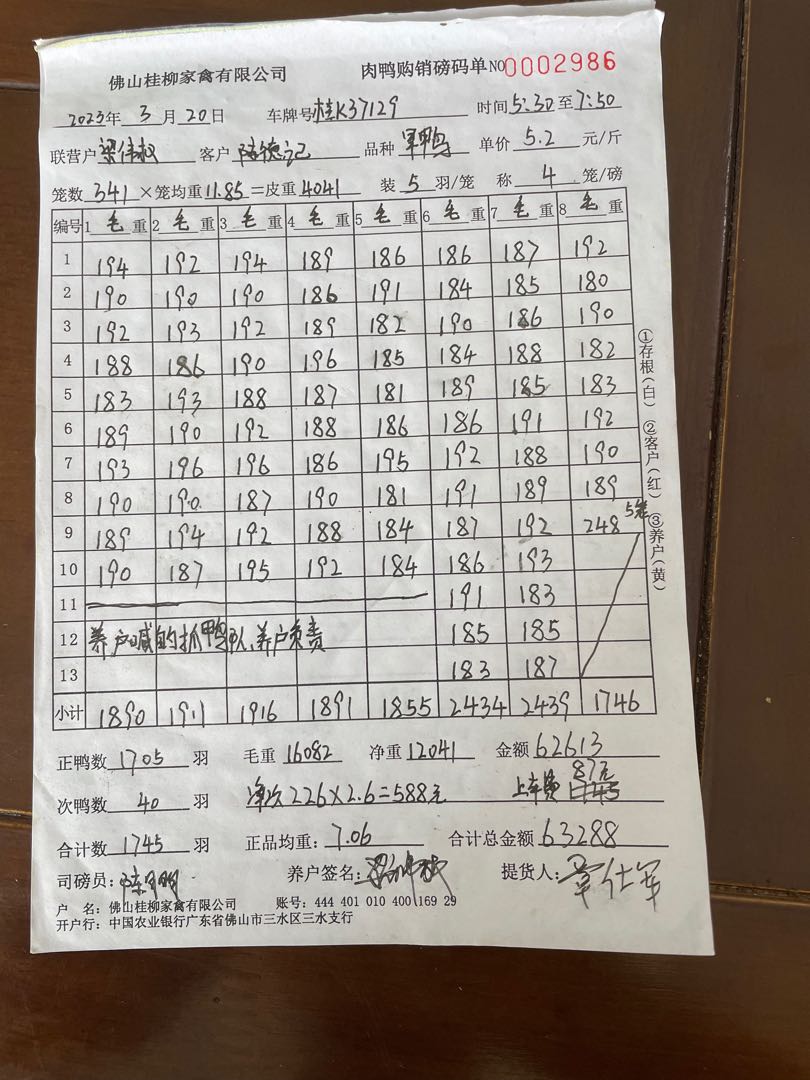 佛山桂柳家禽有限公司 肉鸭购销磅码单 NO 0002986
2023年 3 月 20 日 车牌号 桂K37129 时间 5:30 至 7:50
联营户 梁伟权 客户 陆德记 品种 军鸭 单价 5.2 元/斤
笼数 341 ×笼均重 11.85 =皮重 4041 装 5 羽/笼 称 4 笼/磅
编号 1 毛 重 2 毛 重 3 毛 重 4 毛 重 5 毛 重 6 毛 重 7 毛 重 8 毛 重
1 194 192 194 189 186 186 187 192
2 190 190 190 186 191 184 185 180
3 192 193 192 189 182 190 186 190
4 188 186 190 196 185 184 188 182
5 183 193 188 187 181 189 185 183
6 189 190 192 188 186 186 191 192
7 193 196 196 186 195 192 188 190
8 190 190 187 190 181 191 189 189
9 189 194 192 188 184 187 192 248 5笼
10 190 187 195 192 184 186 193
11 191 183
12 养户喊的抓鸭队,养户负责 185 185
13 183 187
小计 1890 1911 1916 1891 1855 2434 2439 1746
①存根(白) ②客户(红) ③养户(黄)
正鸭数 1705 羽 毛重 16082 净重 12041 金额 62613
次鸭数 40 羽 净次226×2.6=588元 上车费 87元
合计数 1745 羽 正品均重: 7.06 合计总金额 63288
司磅员: 养户签名: 提货人:
户 名: 佛山桂柳家禽有限公司 账号: 444 401 010 400 169 29
开户行: 中国农业银行广东省佛山市三水区三水支行